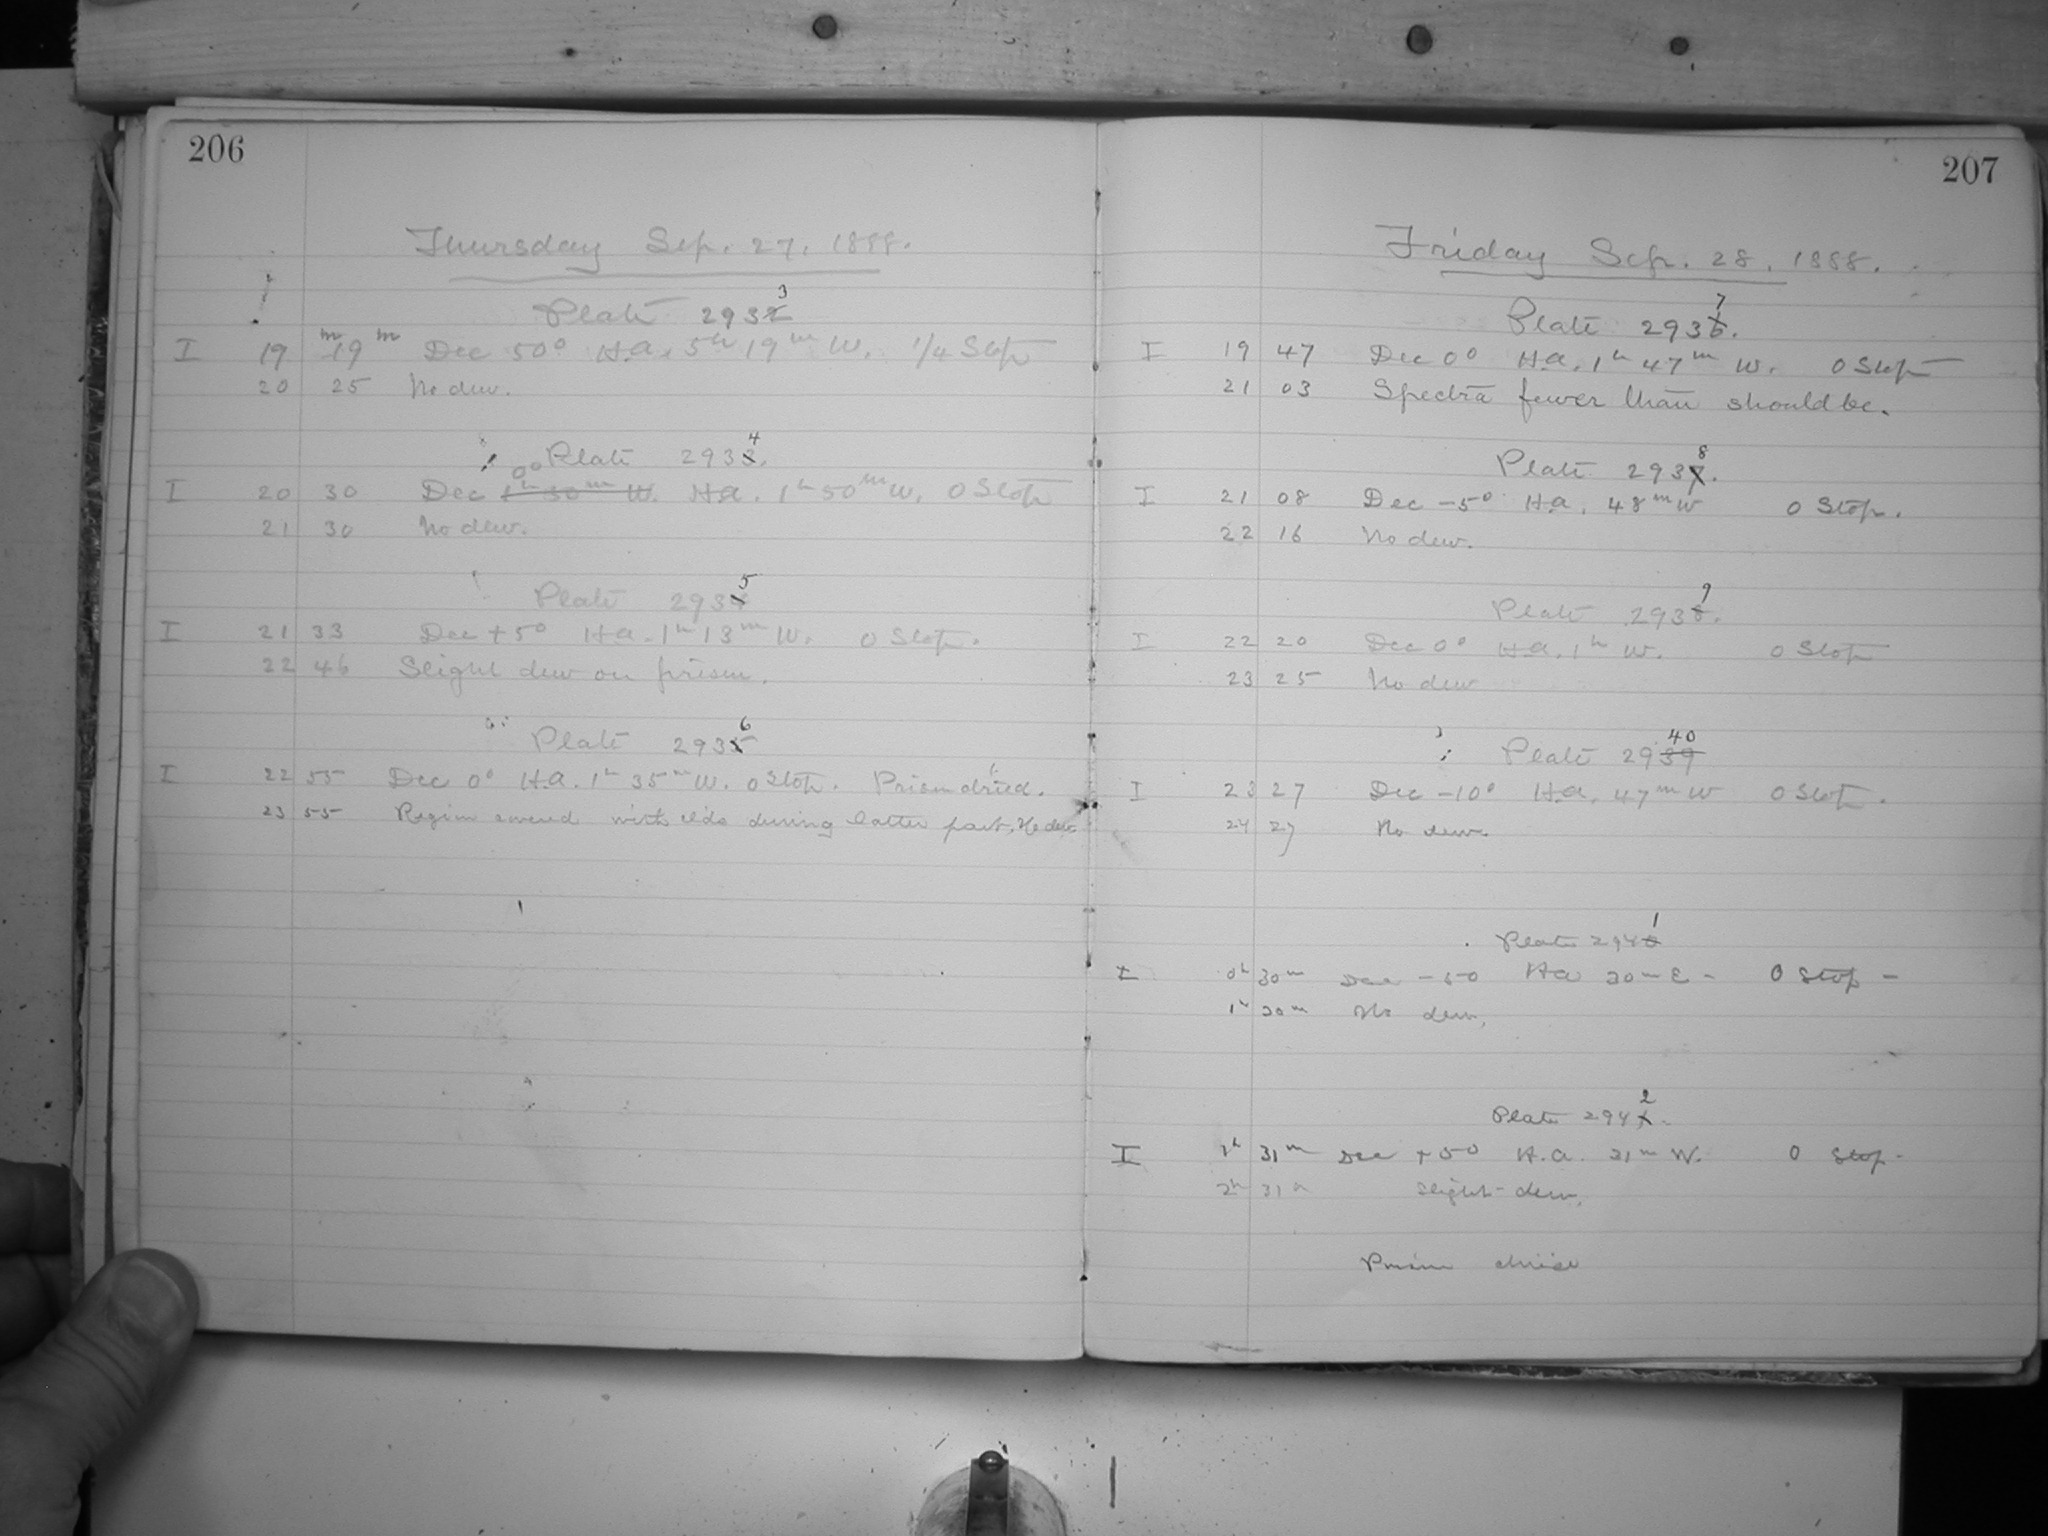 206
Thursday Sep. 27, 1888.
3
Plate 2932
I 19 m 19 m Dec 50° H.a. 5h 19m W. 1/4 Stop
20 25 No dew.
4
Plate 2933.
0°
I 20 30 Dec 1h 50m W. H.a. 1h 50m W. 0 Stop
21 30 No dew.
5
Plate 2934
I 21 33 Dec +5° H.a. 1h 13m W. 0 Stop.
22 46 Slight dew on prism.
6
Plate 2935
I 22 55 Dec 0° H.a. 1h 35m W. 0 Stop. Prism dried.
23 55 Region with clds during latter part, No dew
207
Friday Sep. 28, 1888.
7
Plate 2936.
I 19 47 Dec 0° H.a. 1h 47m W. 0 Stop
21 03 Spectra fewer than should be.
8
Plate 2937.
I 21 08 Dec -5° H.a. 48m W 0 Stop.
22 16 No dew.
9
Plate 2938.
I 22 20 Dec 0° H.a. 1h W. 0 Stop
23 25 No dew
40
Plate 2939
I 23 27 Dec -10° H.a. 47m W 0 Stop.
24 27 No dew.
1
Plate 2940
I 0h 30m Dec -50 Ha 20m E - 0 Stop -
1h 30m No dew,
2
Plate 2941.
I 1h 31m Dec +50 H.a. 31m W. 0 Stop-
2h 31m Slight dew,
Prism dried